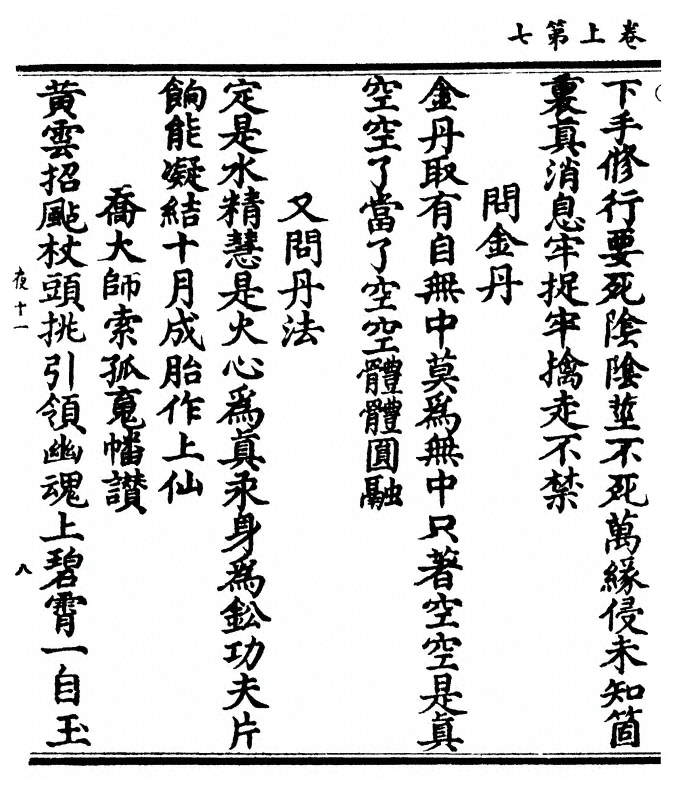 卷上第七
下手修行要死陰陰莖不死萬緣侵未知箇
裏真消息牢捉牢擒走不禁
問金丹
金丹取有自無中莫爲無中只著空空是真
空空了當了空空體體圓融
又問丹法
定是水精慧是火心爲真汞身爲鈆功夫片
餉能凝結十月成胎作上仙
喬大師索孤䰟幡讚
黃雲招颭杖頭挑引領幽魂上碧霄一自玉
夜十一
八